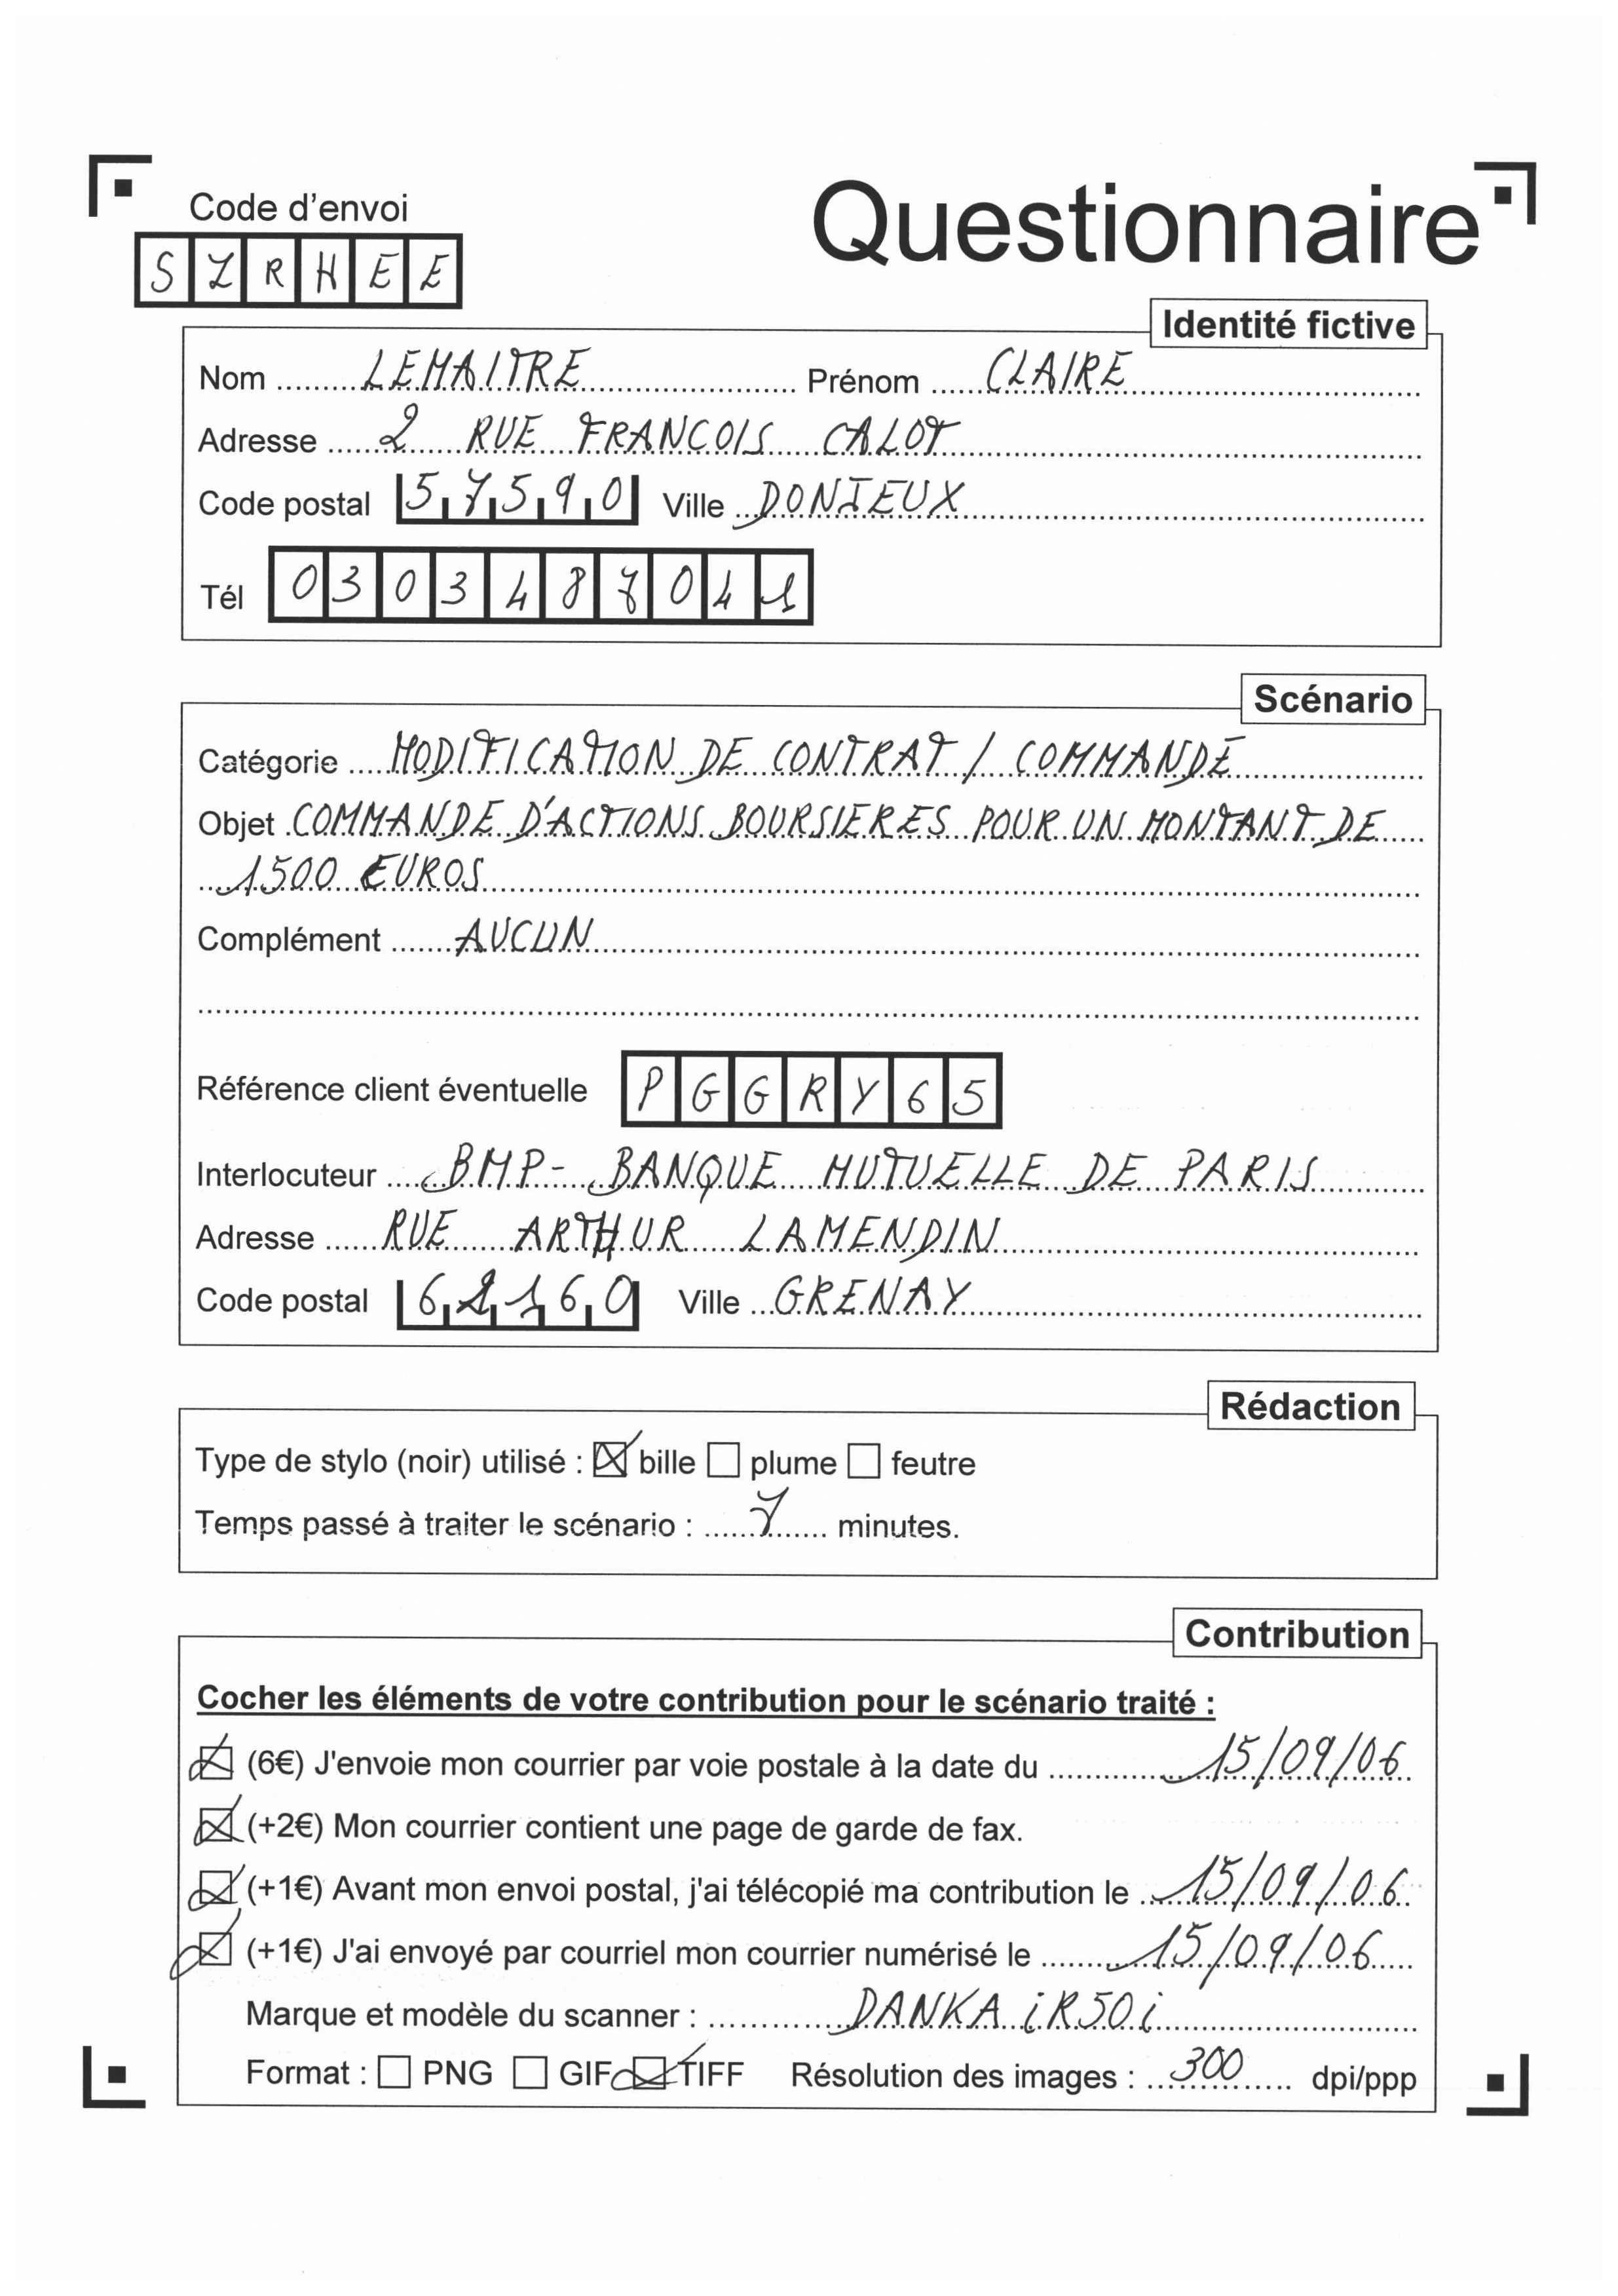 Code d'envoi
Questionnaire
SZRHEE
Identité fictive
Nom LEMAITRE Prénom CLAIRE
Adresse 2 RUE FRANCOIS CALOT
Code postal 57590 Ville DONJEUX
Tél 0303487041
Scénario
Catégorie MODIFICATION DE CONTRAT / COMMANDE
Objet COMMANDE D'ACTIONS BOURSIERES POUR UN MONTANT DE
1500 EUROS
Complément AUCUN
Référence client éventuelle PGGRY65
Interlocuteur BMP- BANQUE MUTUELLE DE PARIS
Adresse RUE ARTHUR LAMENDIN
Code postal 62160 Ville GRENAY
Rédaction
Type de stylo (noir) utilisé : bille plume feutre
Temps passé à traiter le scénario : 7 minutes.
Contribution
Cocher les éléments de votre contribution pour le scénario traité :
(6€) J'envoie mon courrier par voie postale à la date du 15/09/06
(+2€) Mon courrier contient une page de garde de fax.
(+1€) Avant mon envoi postal, j'ai télécopié ma contribution le 15/09/06
(+1€) J'ai envoyé par courriel mon courrier numérisé le 15/09/06
Marque et modèle du scanner : DANKA iR50i
Format : PNG GIF TIFF Résolution des images : 300 dpi/ppp